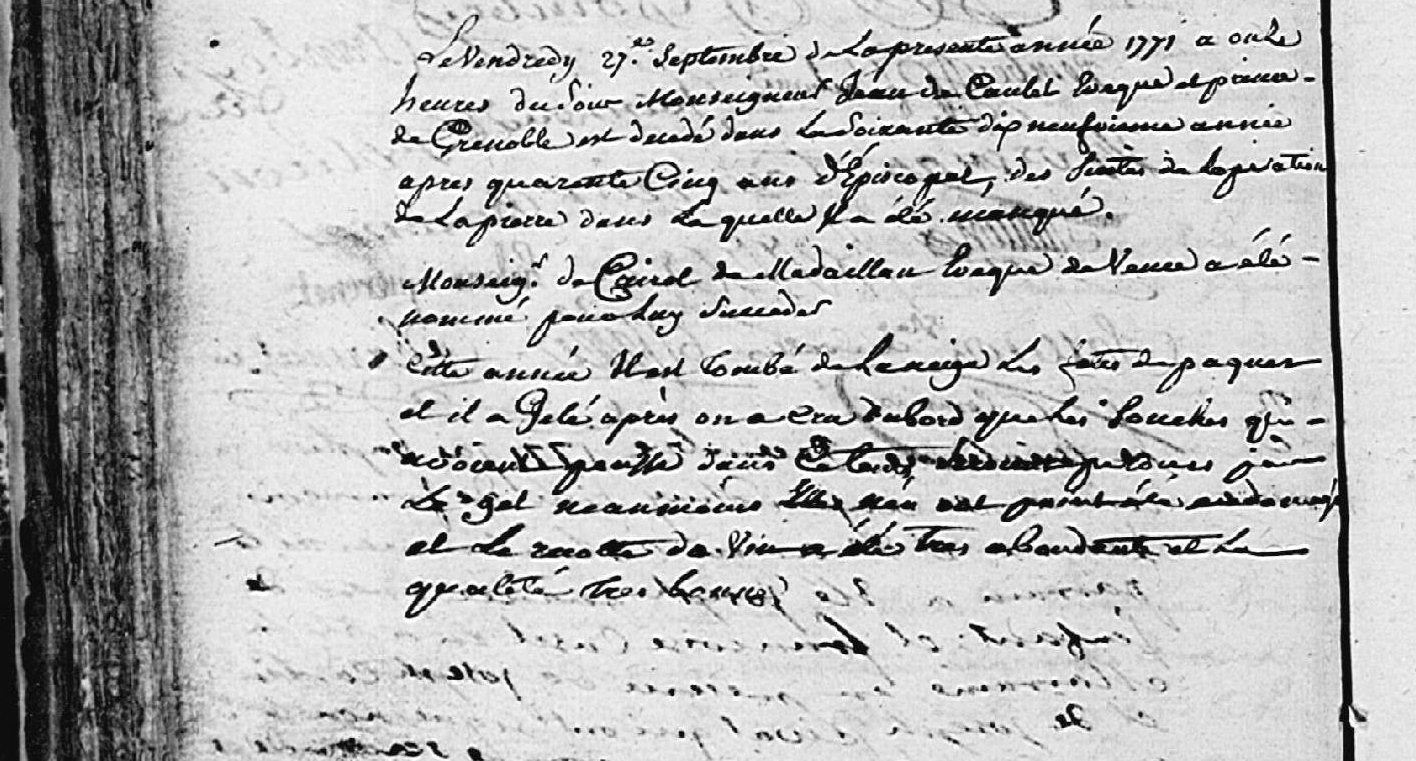 Le Vendredy 27.e Septembre de la presente année 1771 a onze
heures du Soir Monseigneur Jean de Caulet Eveque et prince
de Grenoble est decedé dans la Soixante dix neufvieme année
apres quarante Cinq ans d'Episcopat, des Suittes de loperation
de la pierre dans la quelle Il a été manqué.
Monseig.r de Cairol de Madaillan Eveque de Vence a été
nommé pour luy Succeder
Cette année Il est tombé de la neige les fêtes de paques
et il a Gelé après on a cru dabord que les Souches qui
avoient poussé dans Ce tems Seroient perdues par
Le gel neanmoins Elles n'en ont point été endomagé
et La recolte de Vin a été tres abondante et La
qualité tres bonne